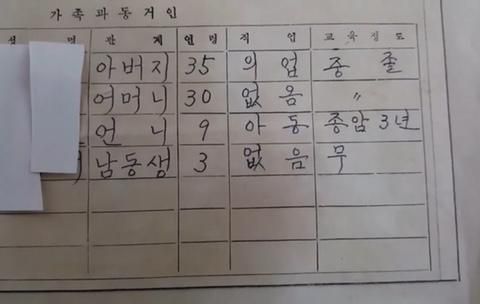 가 족 과 동 거 인
성 명 관 계 연 령 직 업 교 육 정 도
아버지 35 의 업 중 졸
어머니 30 없 음 〃
언 니 9 아 동 종암 3년
남동생 3 없 음 무